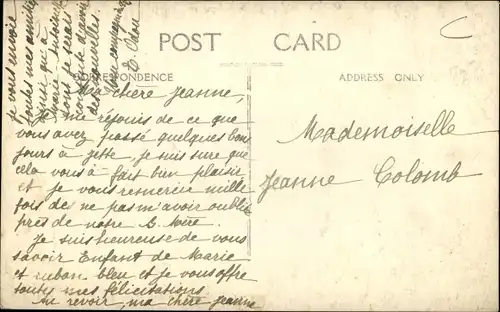 POST CARD
CORRESPONDENCE
ADDRESS ONLY
Ma chère Jeanne,
je me réjouis de ce que
vous avez passé quelques bons
jours à Jette, je suis sure que
cela vous a fait bien plaisir
et je vous remercie mille
fois de ne pas m'avoir oublié
près de notre B. Mère.
Je suis heureuse de vous
savoir Enfant de Marie
et ruban bleu et je vous offre
toutes mes félicitations.
Au revoir, ma chère Jeanne
je vous envoie
toutes mes amitiés
ainsi qu'à
dont je serais
des nouvelles.
Mademoiselle
Jeanne Colomb